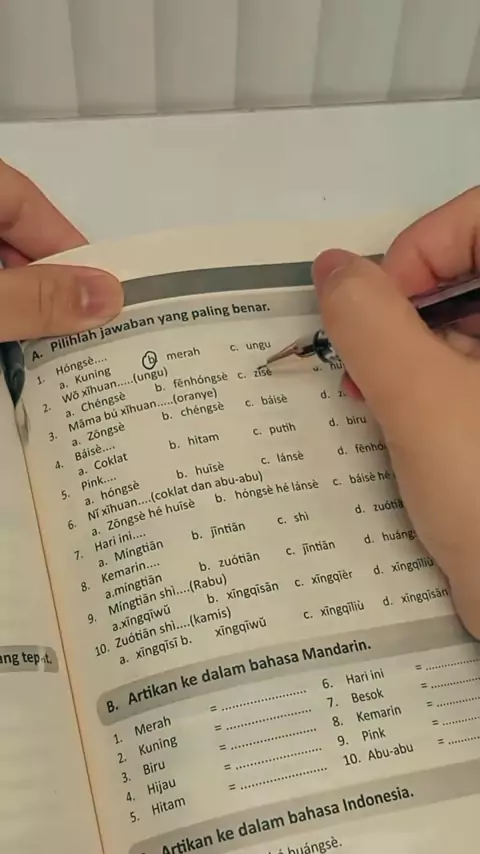 A. Pilihlah jawaban yang paling benar.
1. Hóngsè....
a. Kuning b. merah c. ungu
2. Wǒ xǐhuan.....(ungu)
a. Chéngsè b. fěnhóngsè c. zǐsè d. hu
3. Māma bù xǐhuan.....(oranye)
a. Zōngsè b. chéngsè c. báisè d.
4. Báisè....
a. Coklat b. hitam c. putih d. biru
5. Pink....
a. hóngsè b. huīsè c. lánsè d. fěnhó
6. Nǐ xǐhuan....(coklat dan abu-abu)
a. Zōngsè hé huīsè b. hóngsè hé lánsè c. báisè hé
7. Hari ini....
a. Míngtiān b. jīntiān c. shì d. zuótiā
8. Kemarin....
a.míngtiān b. zuótiān c. jīntiān d. huáng
9. Míngtiān shì....(Rabu)
a.xīngqīwǔ b. xīngqīsān c. xīngqīèr d. xīngqīliù
10. Zuótiān shì....(kamis)
a. xīngqīsī b. xīngqīwǔ c. xīngqīliù d. xīngqīsān
ang tepat.
B. Artikan ke dalam bahasa Mandarin.
1. Merah = ....................
2. Kuning = ....................
3. Biru = ....................
4. Hijau = ....................
5. Hitam = ....................
6. Hari ini = ............
7. Besok = ............
8. Kemarin = ............
9. Pink = ............
10. Abu-abu = ............
Artikan ke dalam bahasa Indonesia.
huángsè.